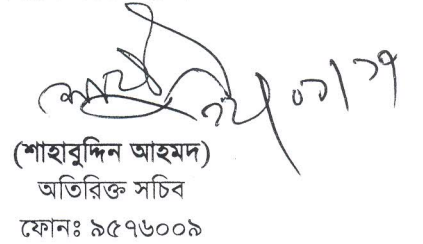 (শাহাবুদ্দিন আহমদ)
অতিরিক্ত সচিব
ফোনঃ ৯৫৭৬০০৯